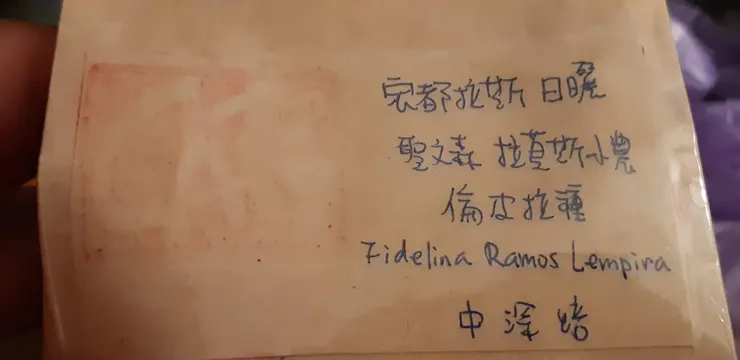 宏都拉斯 日曬
聖文森 拉莫斯小農
倫皮拉種
Fidelina Ramos Lempira
中深焙